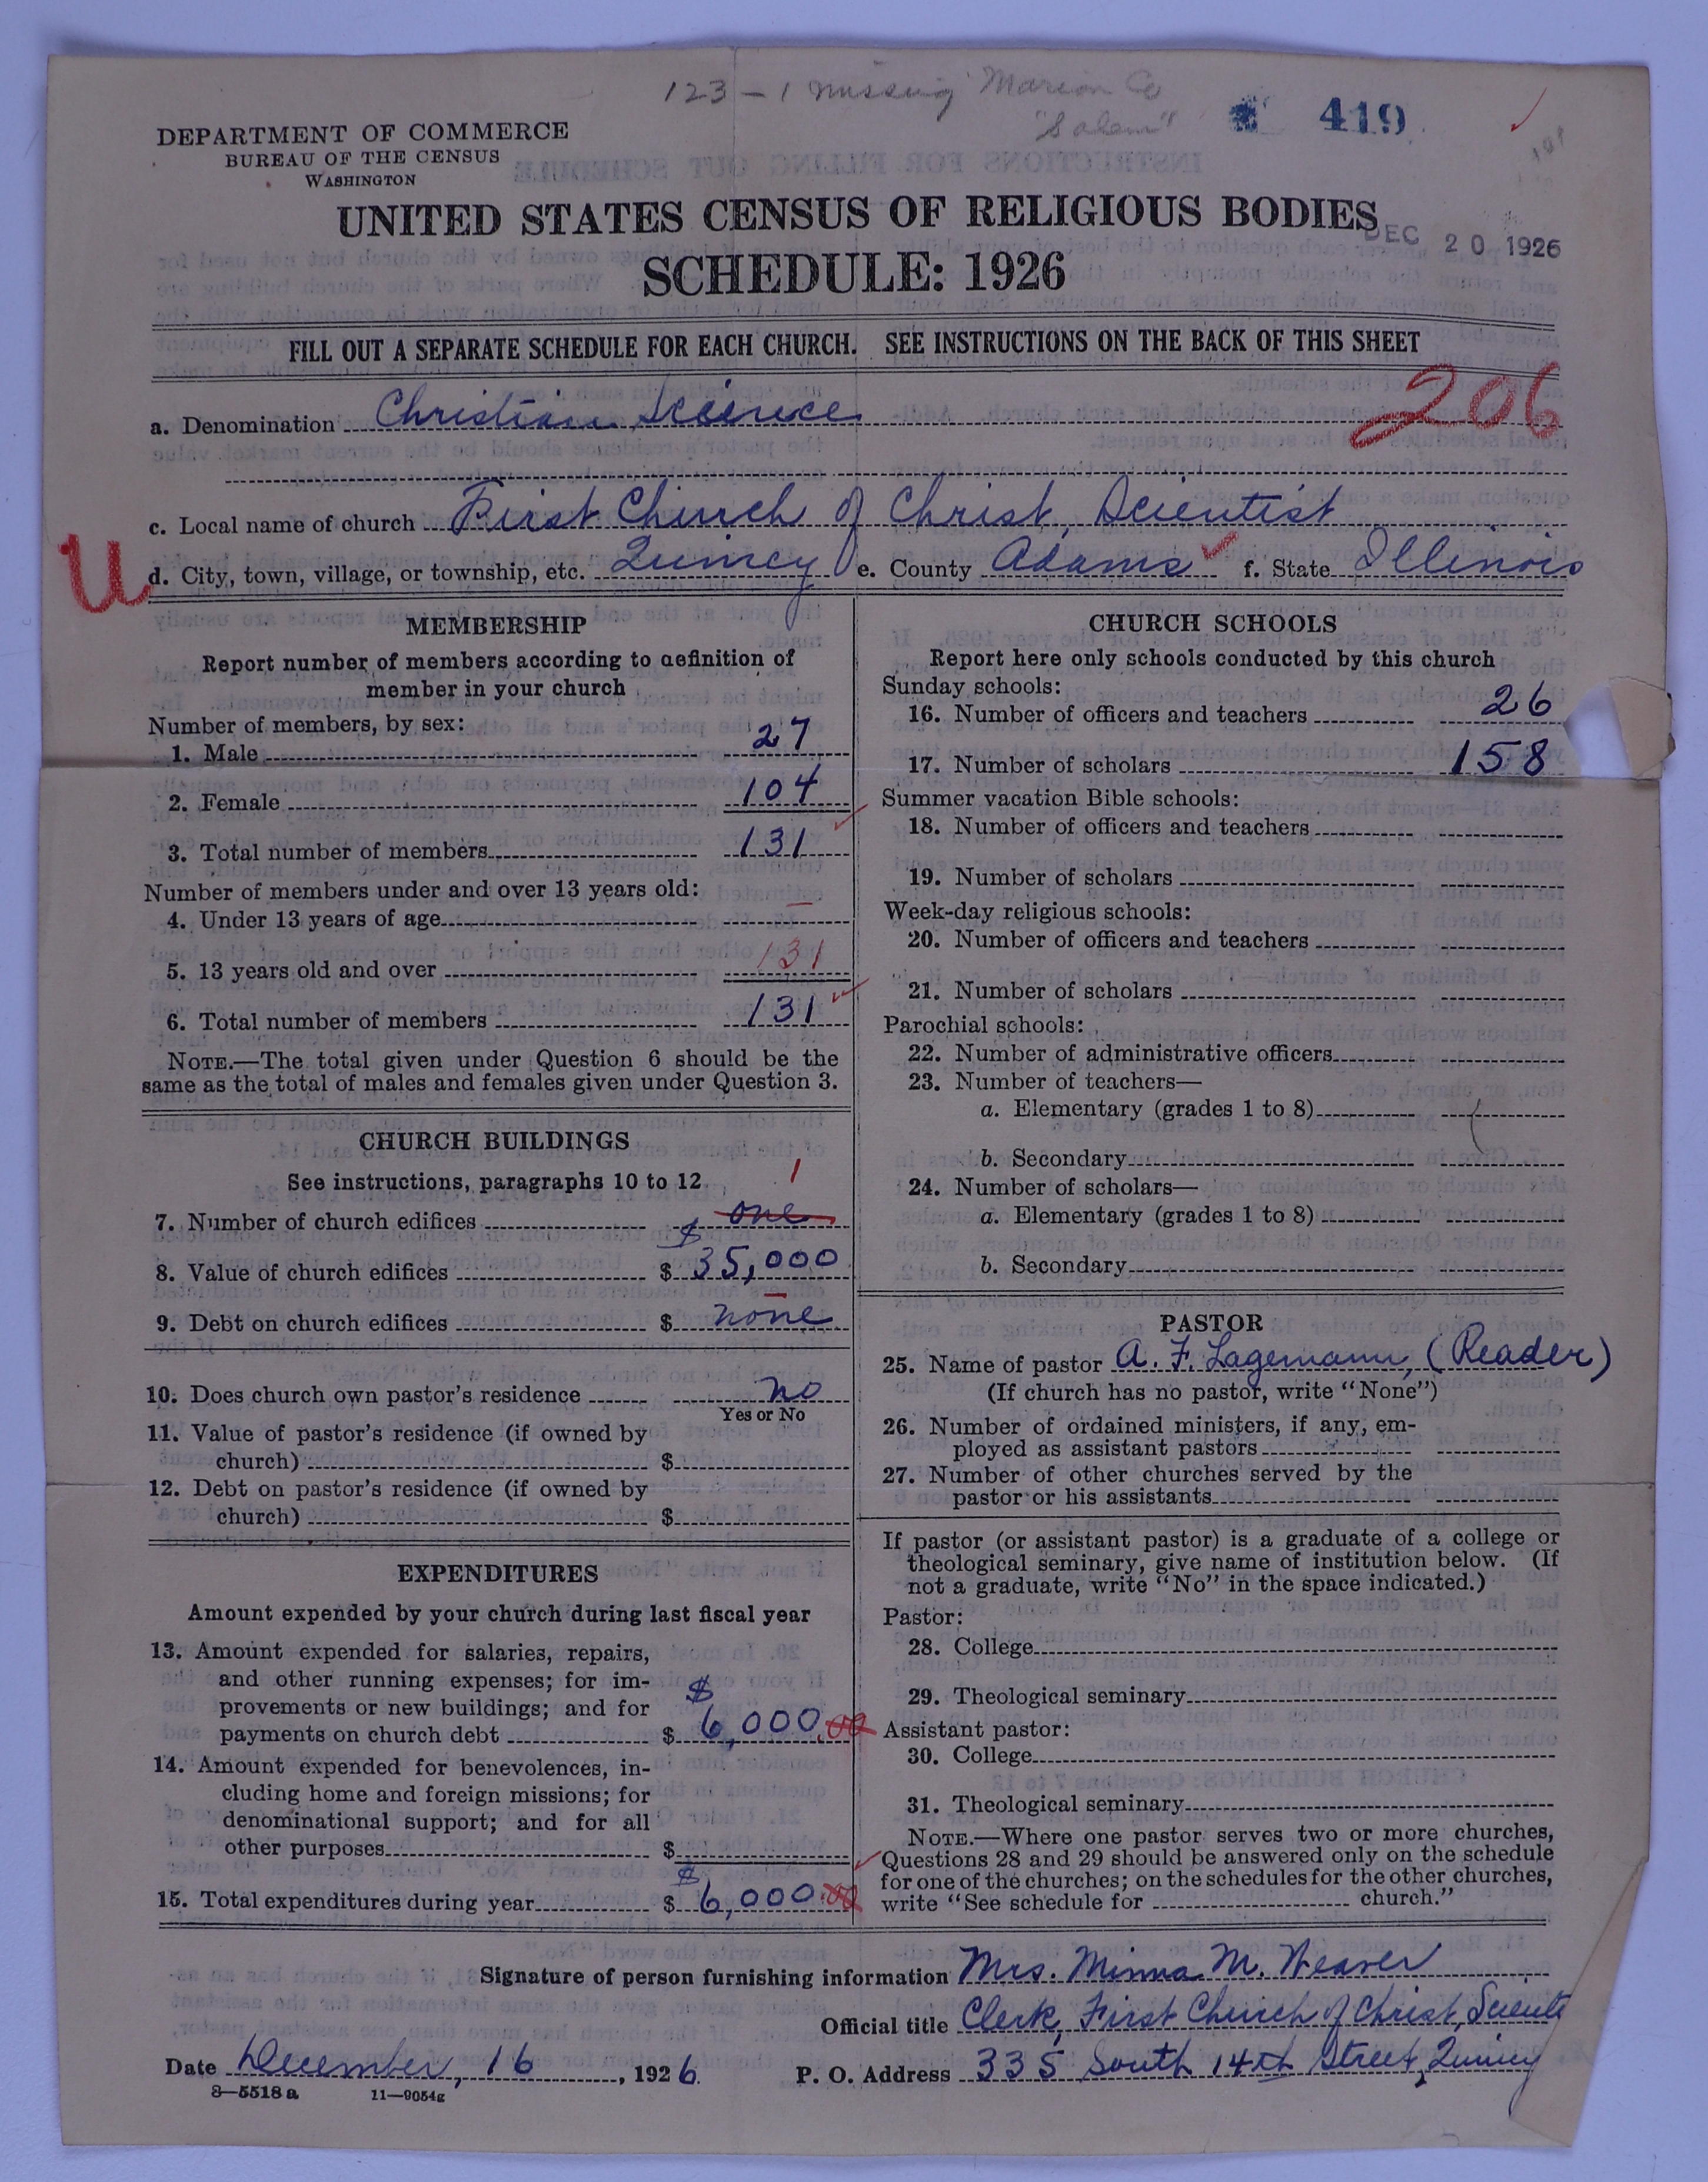 123 - 1 missing Marion Co
"Salem"
419
DEPARTMENT OF COMMERCE
BUREAU OF THE CENSUS
WASHINGTON
UNITED STATES CENSUS OF RELIGIOUS BODIES
DEC 20 1926
SCHEDULE: 1926
FILL OUT A SEPARATE SCHEDULE FOR EACH CHURCH. SEE INSTRUCTIONS ON THE BACK OF THIS SHEET
206
a. Denomination Christian Science
c. Local name of church First Church of Christ, Scientist
U
d. City, town, village, or township, etc. Quincy e. County Adams f. State Illinois
MEMBERSHIP
Report number of members according to definition of
member in your church
Number of members, by sex:
1. Male 27
2. Female 104
3. Total number of members 131
Number of members under and over 13 years old:
4. Under 13 years of age —
5. 13 years old and over 131
6. Total number of members 131
NOTE.—The total given under Question 6 should be the
same as the total of males and females given under Question 3.
CHURCH BUILDINGS
See instructions, paragraphs 10 to 12
1
7. Number of church edifices one
8. Value of church edifices $ $35,000
9. Debt on church edifices $ none
10. Does church own pastor's residence no
Yes or No
11. Value of pastor's residence (if owned by
church) $
12. Debt on pastor's residence (if owned by
church) $
EXPENDITURES
Amount expended by your church during last fiscal year
13. Amount expended for salaries, repairs,
and other running expenses; for im-
provements or new buildings; and for
payments on church debt $ $6,000.00
14. Amount expended for benevolences, in-
cluding home and foreign missions; for
denominational support; and for all
other purposes $
15. Total expenditures during year $ $6,000.00
CHURCH SCHOOLS
Report here only schools conducted by this church
Sunday schools:
16. Number of officers and teachers 26
17. Number of scholars 158
Summer vacation Bible schools:
18. Number of officers and teachers
19. Number of scholars
Week-day religious schools:
20. Number of officers and teachers
21. Number of scholars
Parochial schools:
22. Number of administrative officers
23. Number of teachers—
a. Elementary (grades 1 to 8)
b. Secondary
24. Number of scholars—
a. Elementary (grades 1 to 8)
b. Secondary
PASTOR
25. Name of pastor A. F. Lagemann, (Reader)
(If church has no pastor, write "None")
26. Number of ordained ministers, if any, em-
ployed as assistant pastors
27. Number of other churches served by the
pastor or his assistants
If pastor (or assistant pastor) is a graduate of a college or
theological seminary, give name of institution below. (If
not a graduate, write "No" in the space indicated.)
Pastor:
28. College
29. Theological seminary
Assistant pastor:
30. College
31. Theological seminary
NOTE.—Where one pastor serves two or more churches,
Questions 28 and 29 should be answered only on the schedule
for one of the churches; on the schedules for the other churches,
write "See schedule for church."
Signature of person furnishing information Mrs. Minna M. Weaver
Official title Clerk, First Church of Christ, Scientis
Date December, 16, 1926 P. O. Address 335 South 14th Street, Quincy
8—5518 a 11—9054g